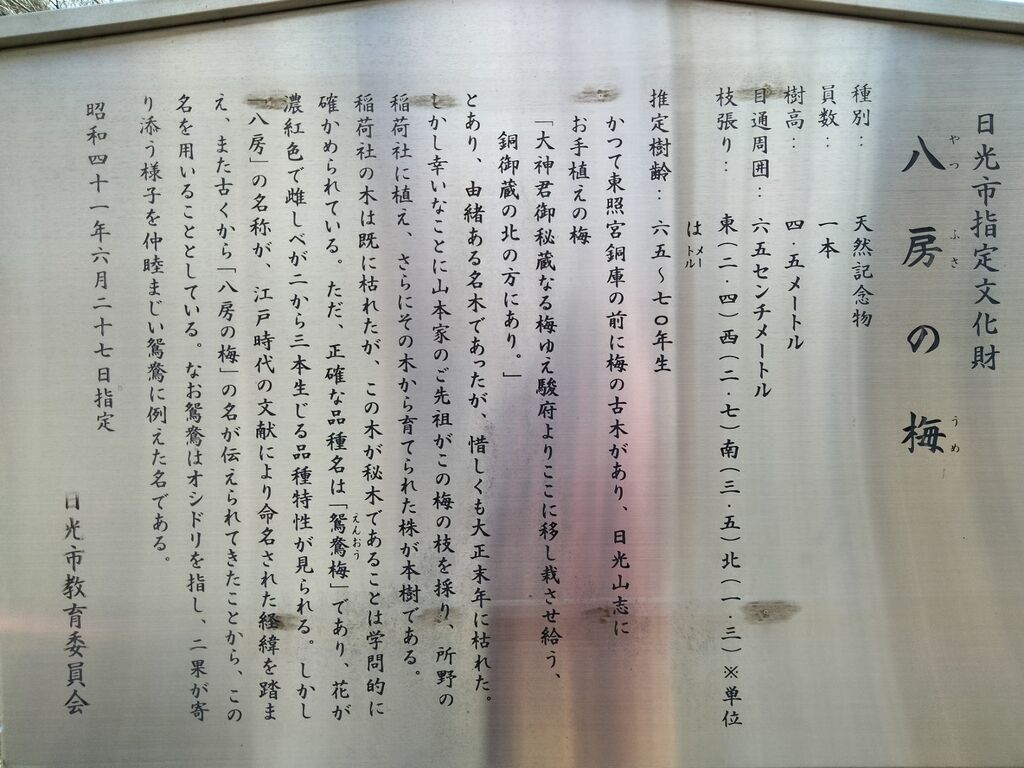 日光市指定文化財
八房の梅
やつ ふさ うめ
種別： 天然記念物
員数： 一本
樹高： 四．五メートル
目通周囲： 六五センチメートル
枝張り： 東（二．四）西（二．七）南（三．五）北（一．三）※単位
はメートル
推定樹齢： 六五～七〇年生
かつて東照宮銅庫の前に梅の古木があり、日光山志に
お手植えの梅
「大神君御秘蔵なる梅ゆえ駿府よりここに移し栽させ給う、
銅御蔵の北の方にあり。」
とあり、由緒ある名木であったが、惜しくも大正末年に枯れた。
しかし幸いなことに山本家のご先祖がこの梅の枝を採り、所野の
稲荷社に植え、さらにその木から育てられた株が本樹である。
稲荷社の木は既に枯れたが、この木が秘木であることは学問的に
確かめられている。ただ、正確な品種名は「鴛鴦梅」であり、花が
えんおう
濃紅色で雌しべが二から三本生じる品種特性が見られる。しかし
「八房」の名称が、江戸時代の文献により命名された経緯を踏ま
え、また古くから「八房の梅」の名が伝えられてきたことから、この
名を用いることとしている。なお鴛鴦はオシドリを指し、二果が寄
り添う様子を仲睦まじい鴛鴦に例えた名である。
昭和四十一年六月二十七日指定
日光市教育委員会